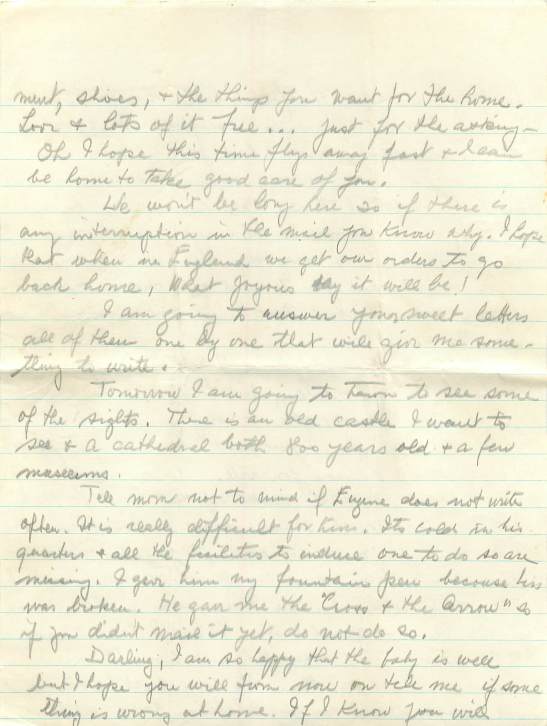 ment, shoes, + the things you want for the home.
Love + lots of it free... just for the asking -
Oh I hope this time flys away fast + I can
be home to take good care of you.
We won't be long here so if there is
any interruption in the mail you know why. I hope
that when in England we get our orders to go
back home, What joyous day it will be!
I am going to answer your sweet letters
all of them one by one that will give me some-
thing to write.
Tomorrow I am going to town to see some
of the sights. There is an old castle I want to
see + a cathedral both 800 years old + a few
museums.
Tell mom not to mind if Eugene does not write
often. It is really difficult for him. Its cold in his
quarters + all the facilities to induce one to do so are
missing. I gave him my fountain pen because his
was broken. He gave me the "Cross + the Arrow" so
if you didn't mail it yet, do not do so.
Darling, I am so happy that the baby is well
but I hope you will from now on tell me if some
thing is wrong at home. If I know you will